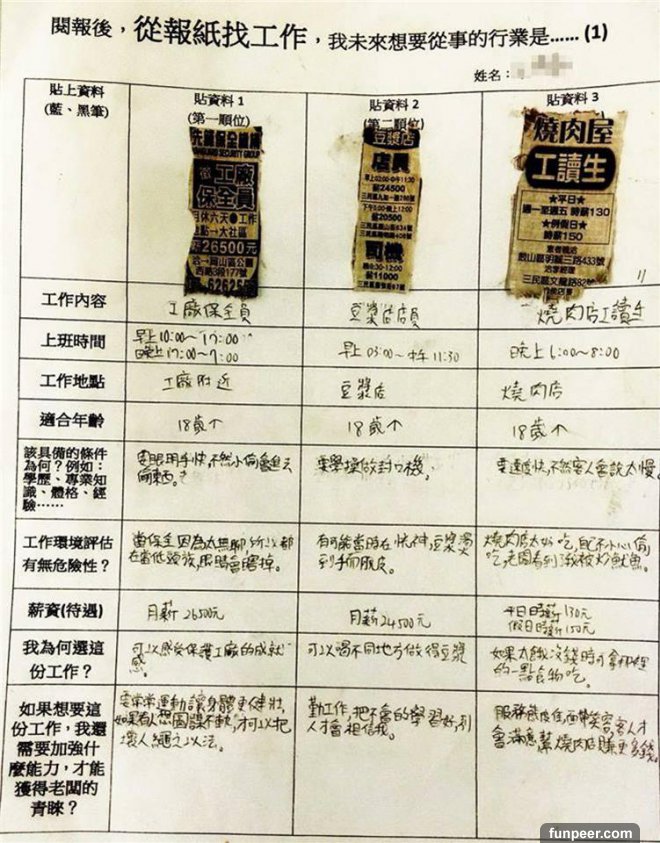 閱報後，從報紙找工作，我未來想要從事的行業是…… (1)
姓名：
貼上資料
(藍、黑筆)
貼資料 1
(第一順位)
貼資料 2
(第二順位)
貼資料 3
工廠
保全員
月休六天●工作
地點→大社區
26500元
豆漿店
店員
早上03:00-中午11:30
薪24500
下午5:00-晚上12:00
薪20500
司機
薪11000
燒肉屋
工讀生
★平日★
週一至週五 時薪130
★例假日★
時薪150
鼓山區明誠三路433號
工作內容
工廠保全員
豆漿店店員
燒肉店工讀生
上班時間
早上10:00～17:00
晚上17:00～7:00
早上 03:00～中午 11:30
晚上 1:00～8:00
工作地點
工廠附近
豆漿店
燒肉店
適合年齡
18歲↑
18歲↑
18歲↑
該具備的條件
為何？例如：
學歷、專業知
識、體格、經
驗……
要眼明手快，不然小偷會進去
偷東西。
要學操做封口機。
要速度快，不然客人會說太慢
工作環境評估
有無危險性？
當保全因為太無聊，所以都
在當低頭族，眼睛會瞎掉。
燒肉店太好吃，自己不小心偷
吃，老闆看到，我被炒魷魚。
薪資(待遇)
月薪26500元
月薪24500元
平日時薪130元
假日時薪150元
我為何選這
份工作？
可以感受保護工廠的成就
感。
可以喝不同地方做得豆漿
如果太餓沒錢時可拿那裡
的一點食物吃。
如果想要這
份工作，我還
需要加強什
麼能力，才能
獲得老闆的
青睞？
要常常運動讓身體更健壯，
如果有人想圖謀不軌，才可以把
壞人繩之以法。
勤工作，把不會的學習好，別
人才會相信我。
服務態度佳，面帶笑容，客人才
會滿意幫燒肉店賺更多錢。
funpeer.com